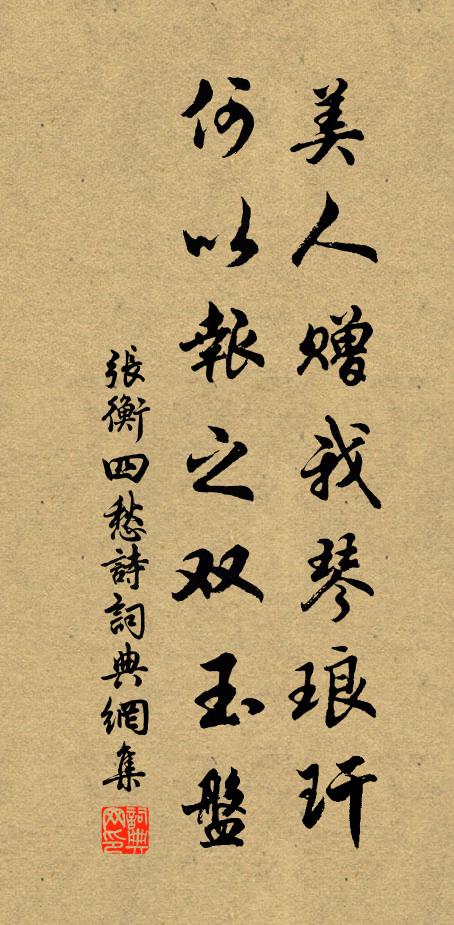 美人赠我琴琅玕
何以報之双玉盤
張衡四愁詩詞典網集
詞典网印